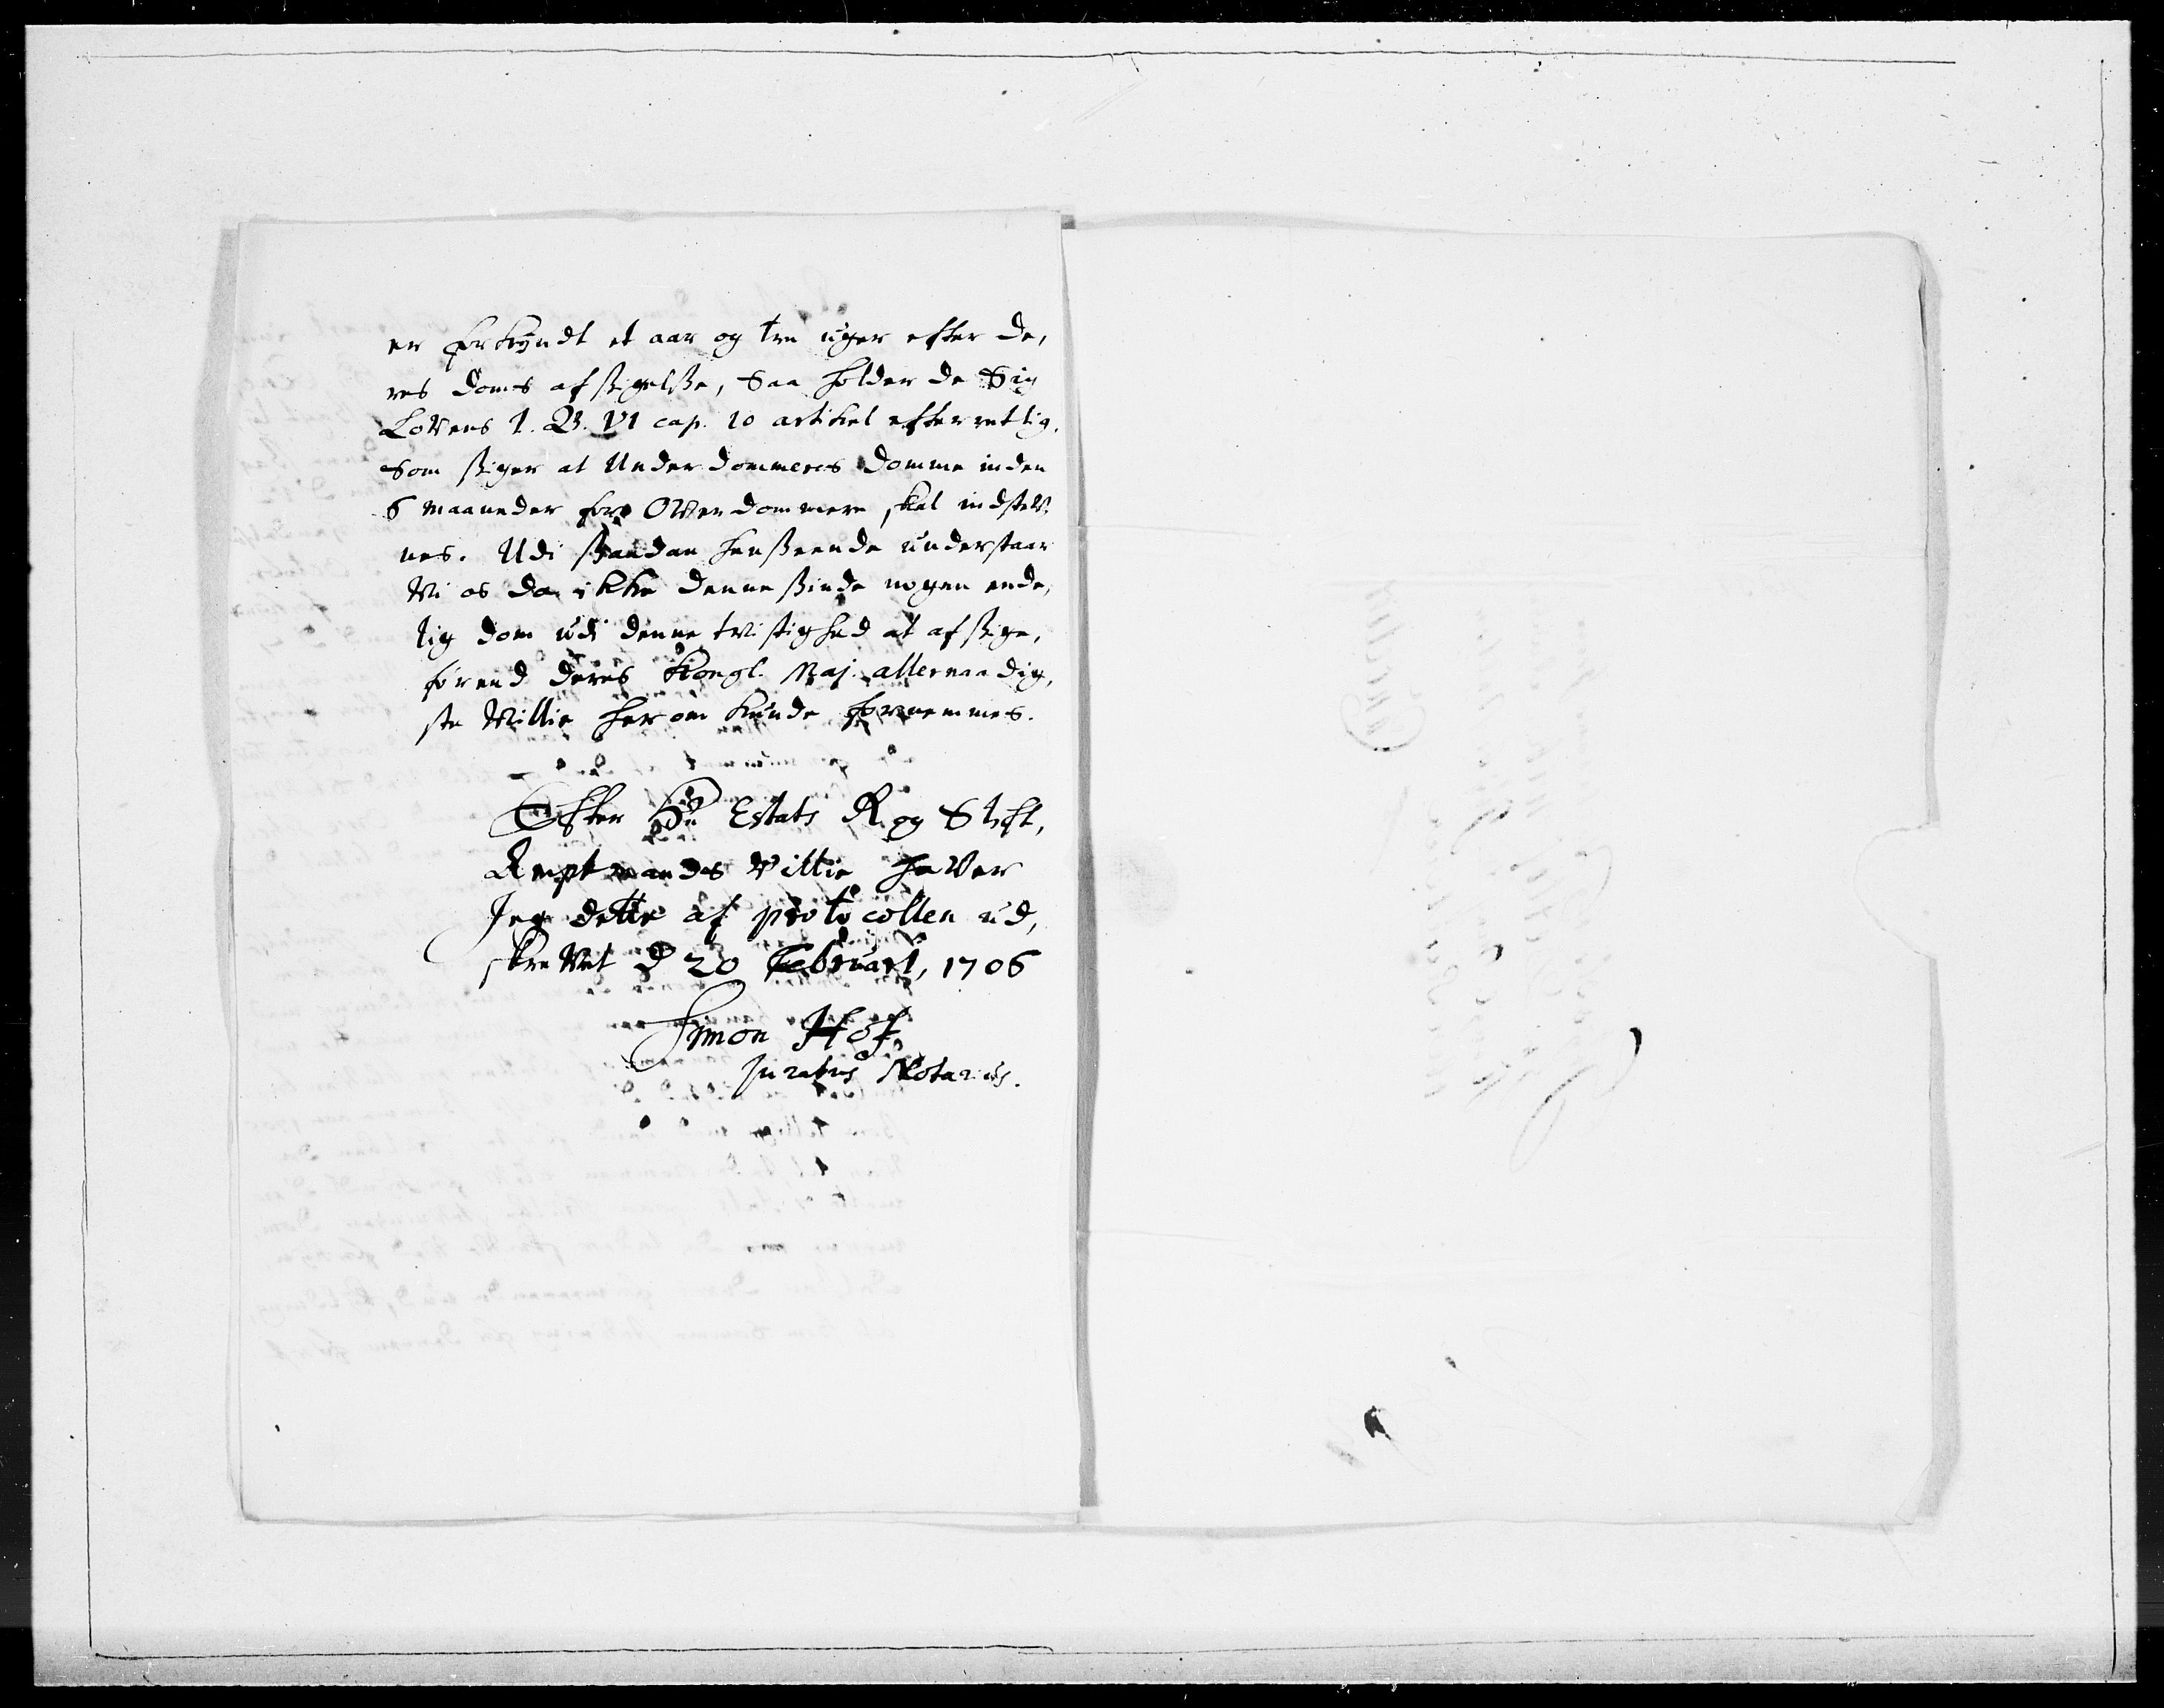 er forkyndt et aar og tre uger efter de,
res doms afsigelsse, Saa holder de Sig
Lovens 1. B. VI cap. 10 artikel efterrettlig,
Som siger at Underdommeres domme inden
6 maaneder for Overdommere skal indstev,
nes. Udi saadan henseende understaar
Vi os da ikke denne sinde nogen ende,
lig dom udi denne tvistighed at afsige,
førend deres Kongl. Maj. allernaadig,
ste Villie herom kunde fornemmes.
Efter Hr Estats R og Stift,
Amptmands Villie haver
Jeg dette af protocollen ud,
skrevet d 20 Februari, 1706
Simon Hof
Juratus Notarius.